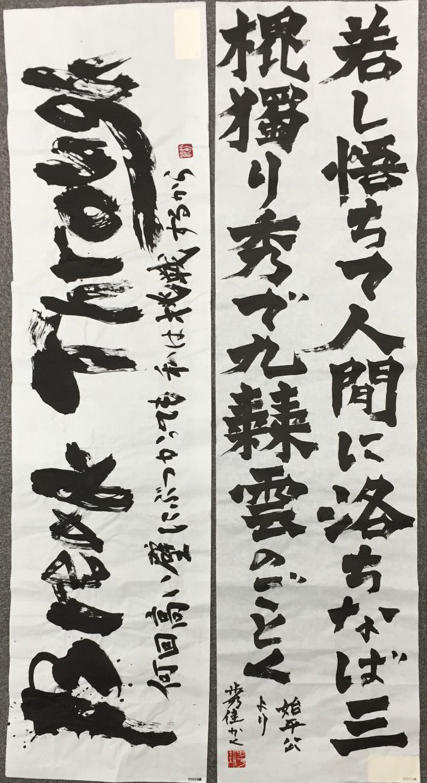 若し悟ちて人間に洛ちなば三
槐獨り秀で九棘雲のごとく
始平公
より
Break Through
何回高い壁にぶつかっても私は挑戦するから